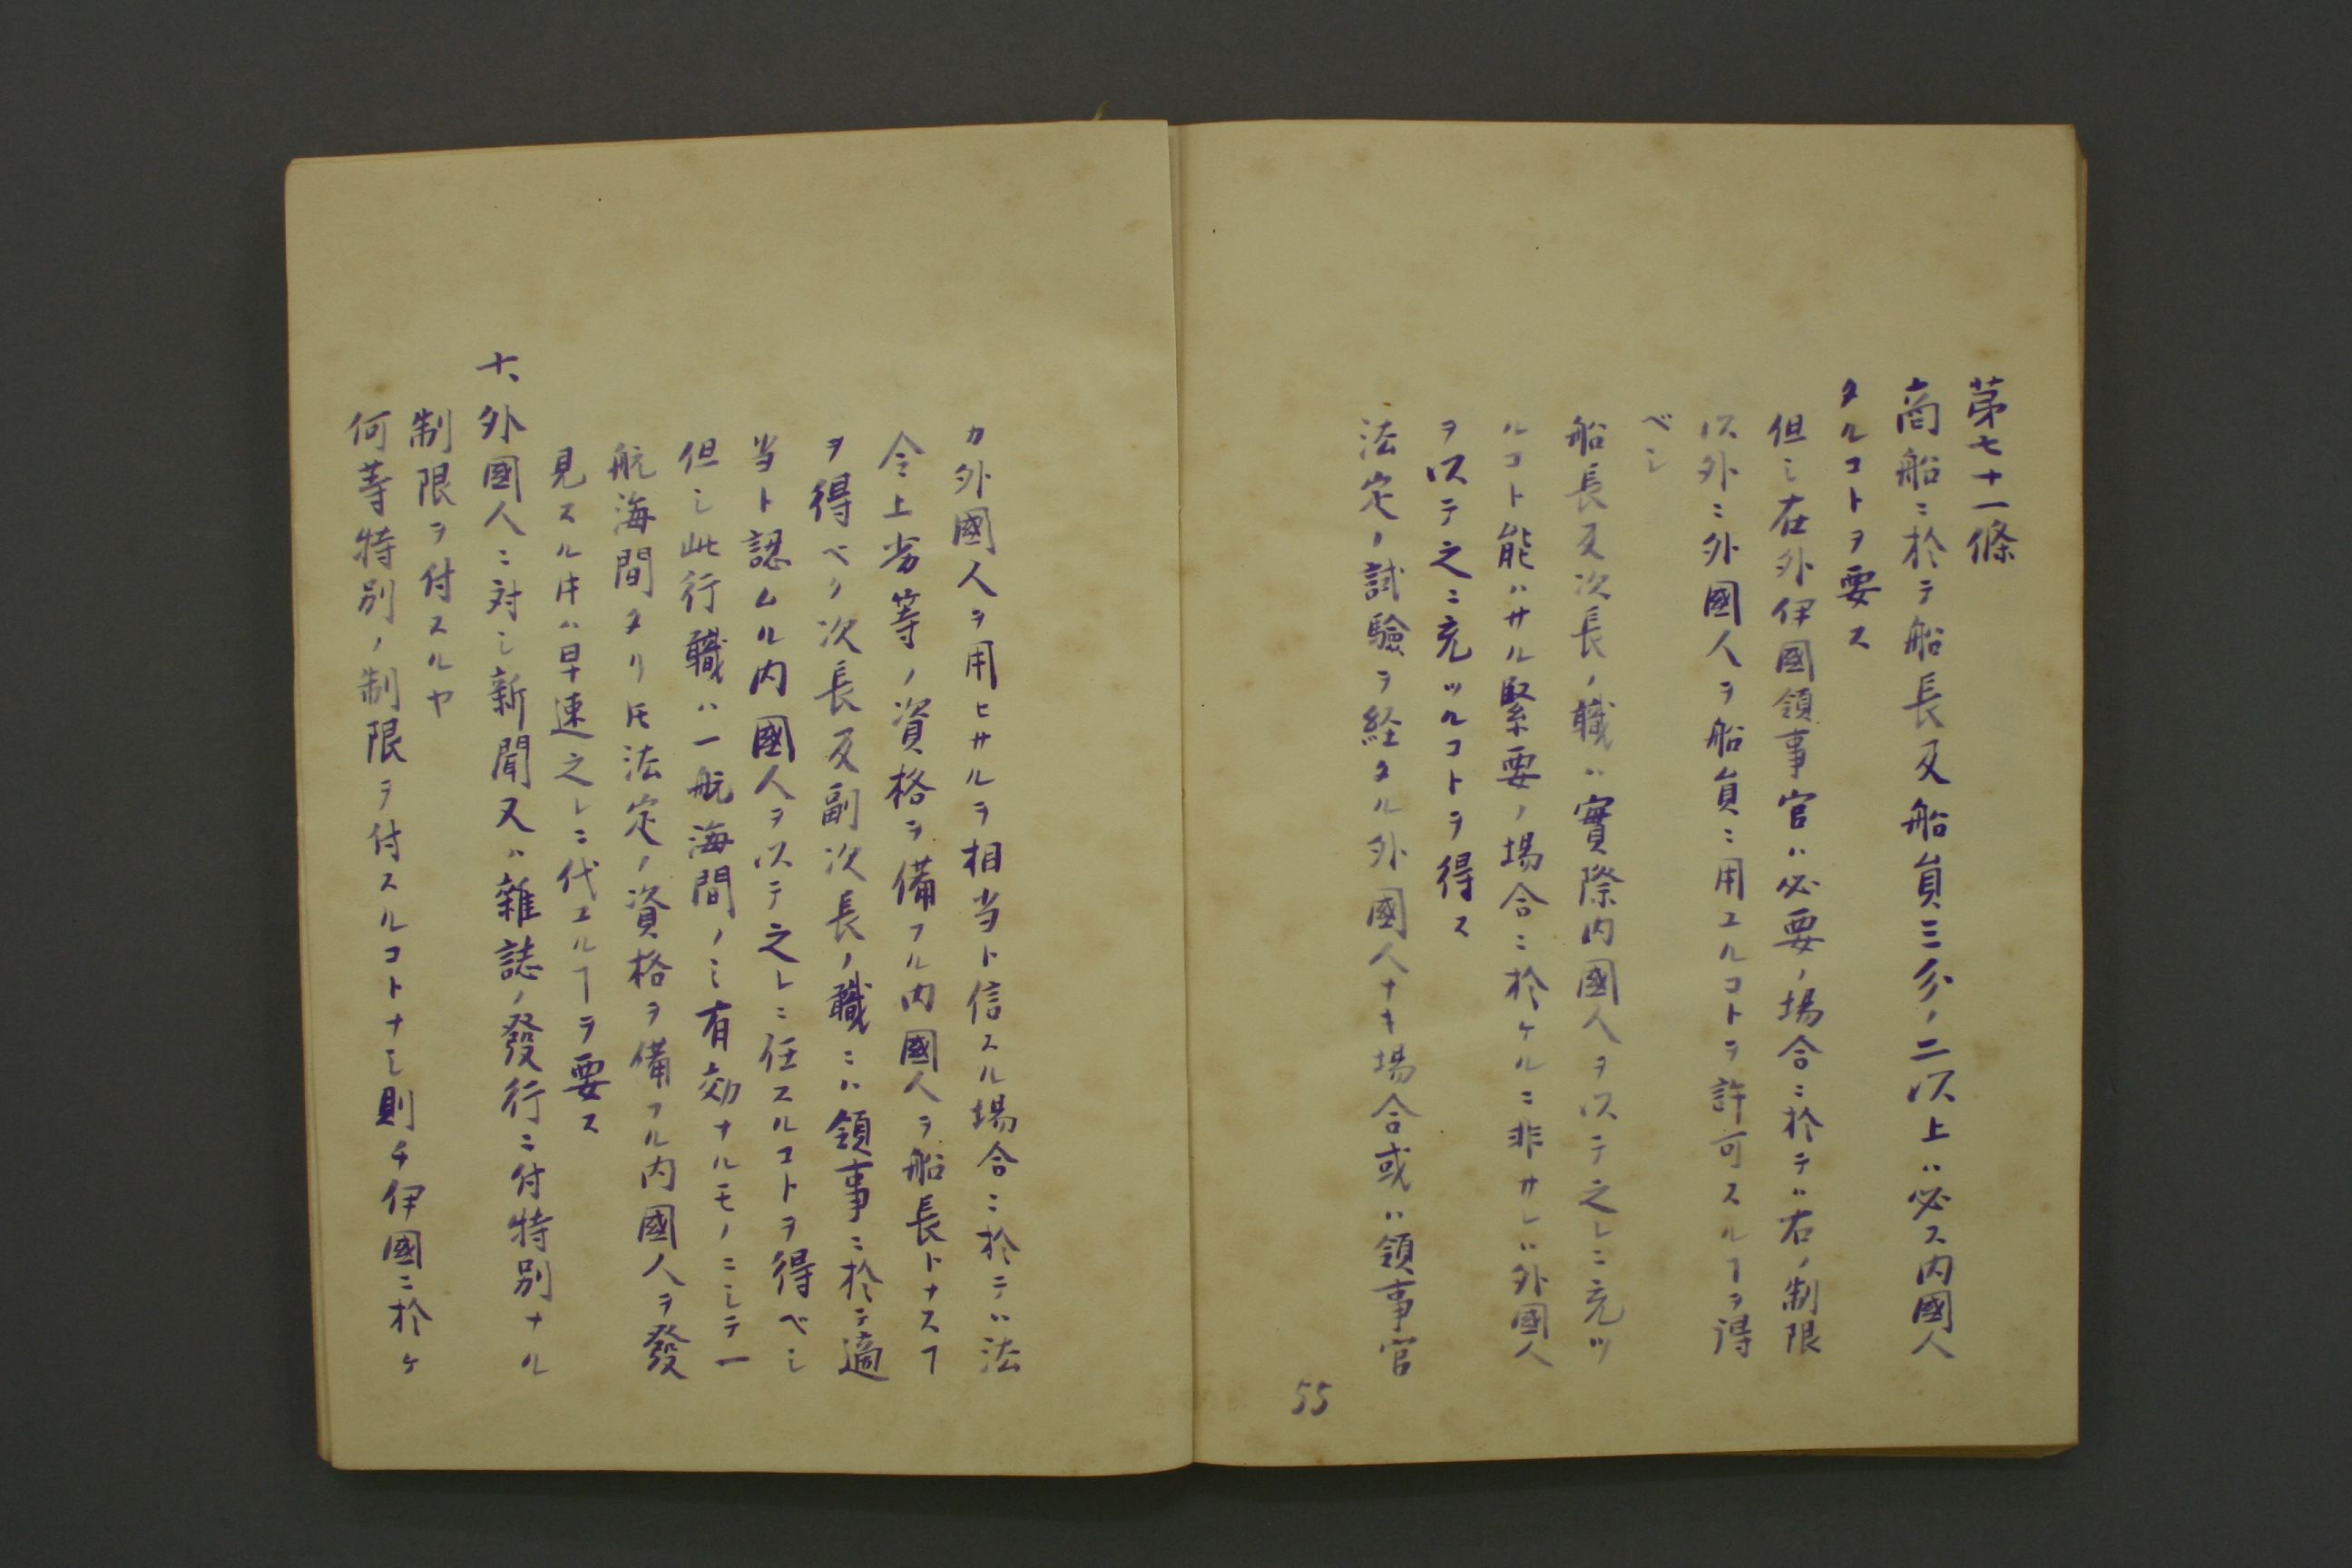 第七十一條
商船ニ於テ船長及船員三分ノ二以上ハ必ス内國人
タルコトヲ要ス
但シ在外伊國領事官ハ必要ノ場合ニ於テハ右ノ制限
以外ニ外國人ヲ船員ニ用ユルコトヲ許可スルヿヲ得
ベシ
船長及次長ノ職ハ實際内國人ヲ以テ之レニ充ツ
ルコト能ハサル緊要ノ場合ニ於ケルニ非サレハ外國人
ヲ以テ之ニ充ツルコトヲ得ス
法定ノ試驗ヲ経タル外國人ナキ場合或ハ領事官
55
カ外國人ヲ用ヒサルヲ相当ト信スル場合ニ於テハ法
令上劣等ノ資格ヲ備フル内國人ヲ船長トナスヿ
ヲ得ベク次長及副次長ノ職ニハ領事ニ於テ適
当ト認ムル内國人ヲ以テ之レニ任スルコトヲ得ベシ
但シ此行職ハ一航海間ノミ有効ナルモノニシテ一
航海間タリ𪜈法定ノ資格ヲ備フル内國人ヲ發
見スル𪜀ハ早速之レニ代ユルヿヲ要ス
十、外國人ニ対シ新聞又ハ雜誌ノ發行ニ付特別ナル
制限ヲ付スルヤ
何等特別ノ制限ヲ付スルコトナシ則チ伊國ニ於ケ